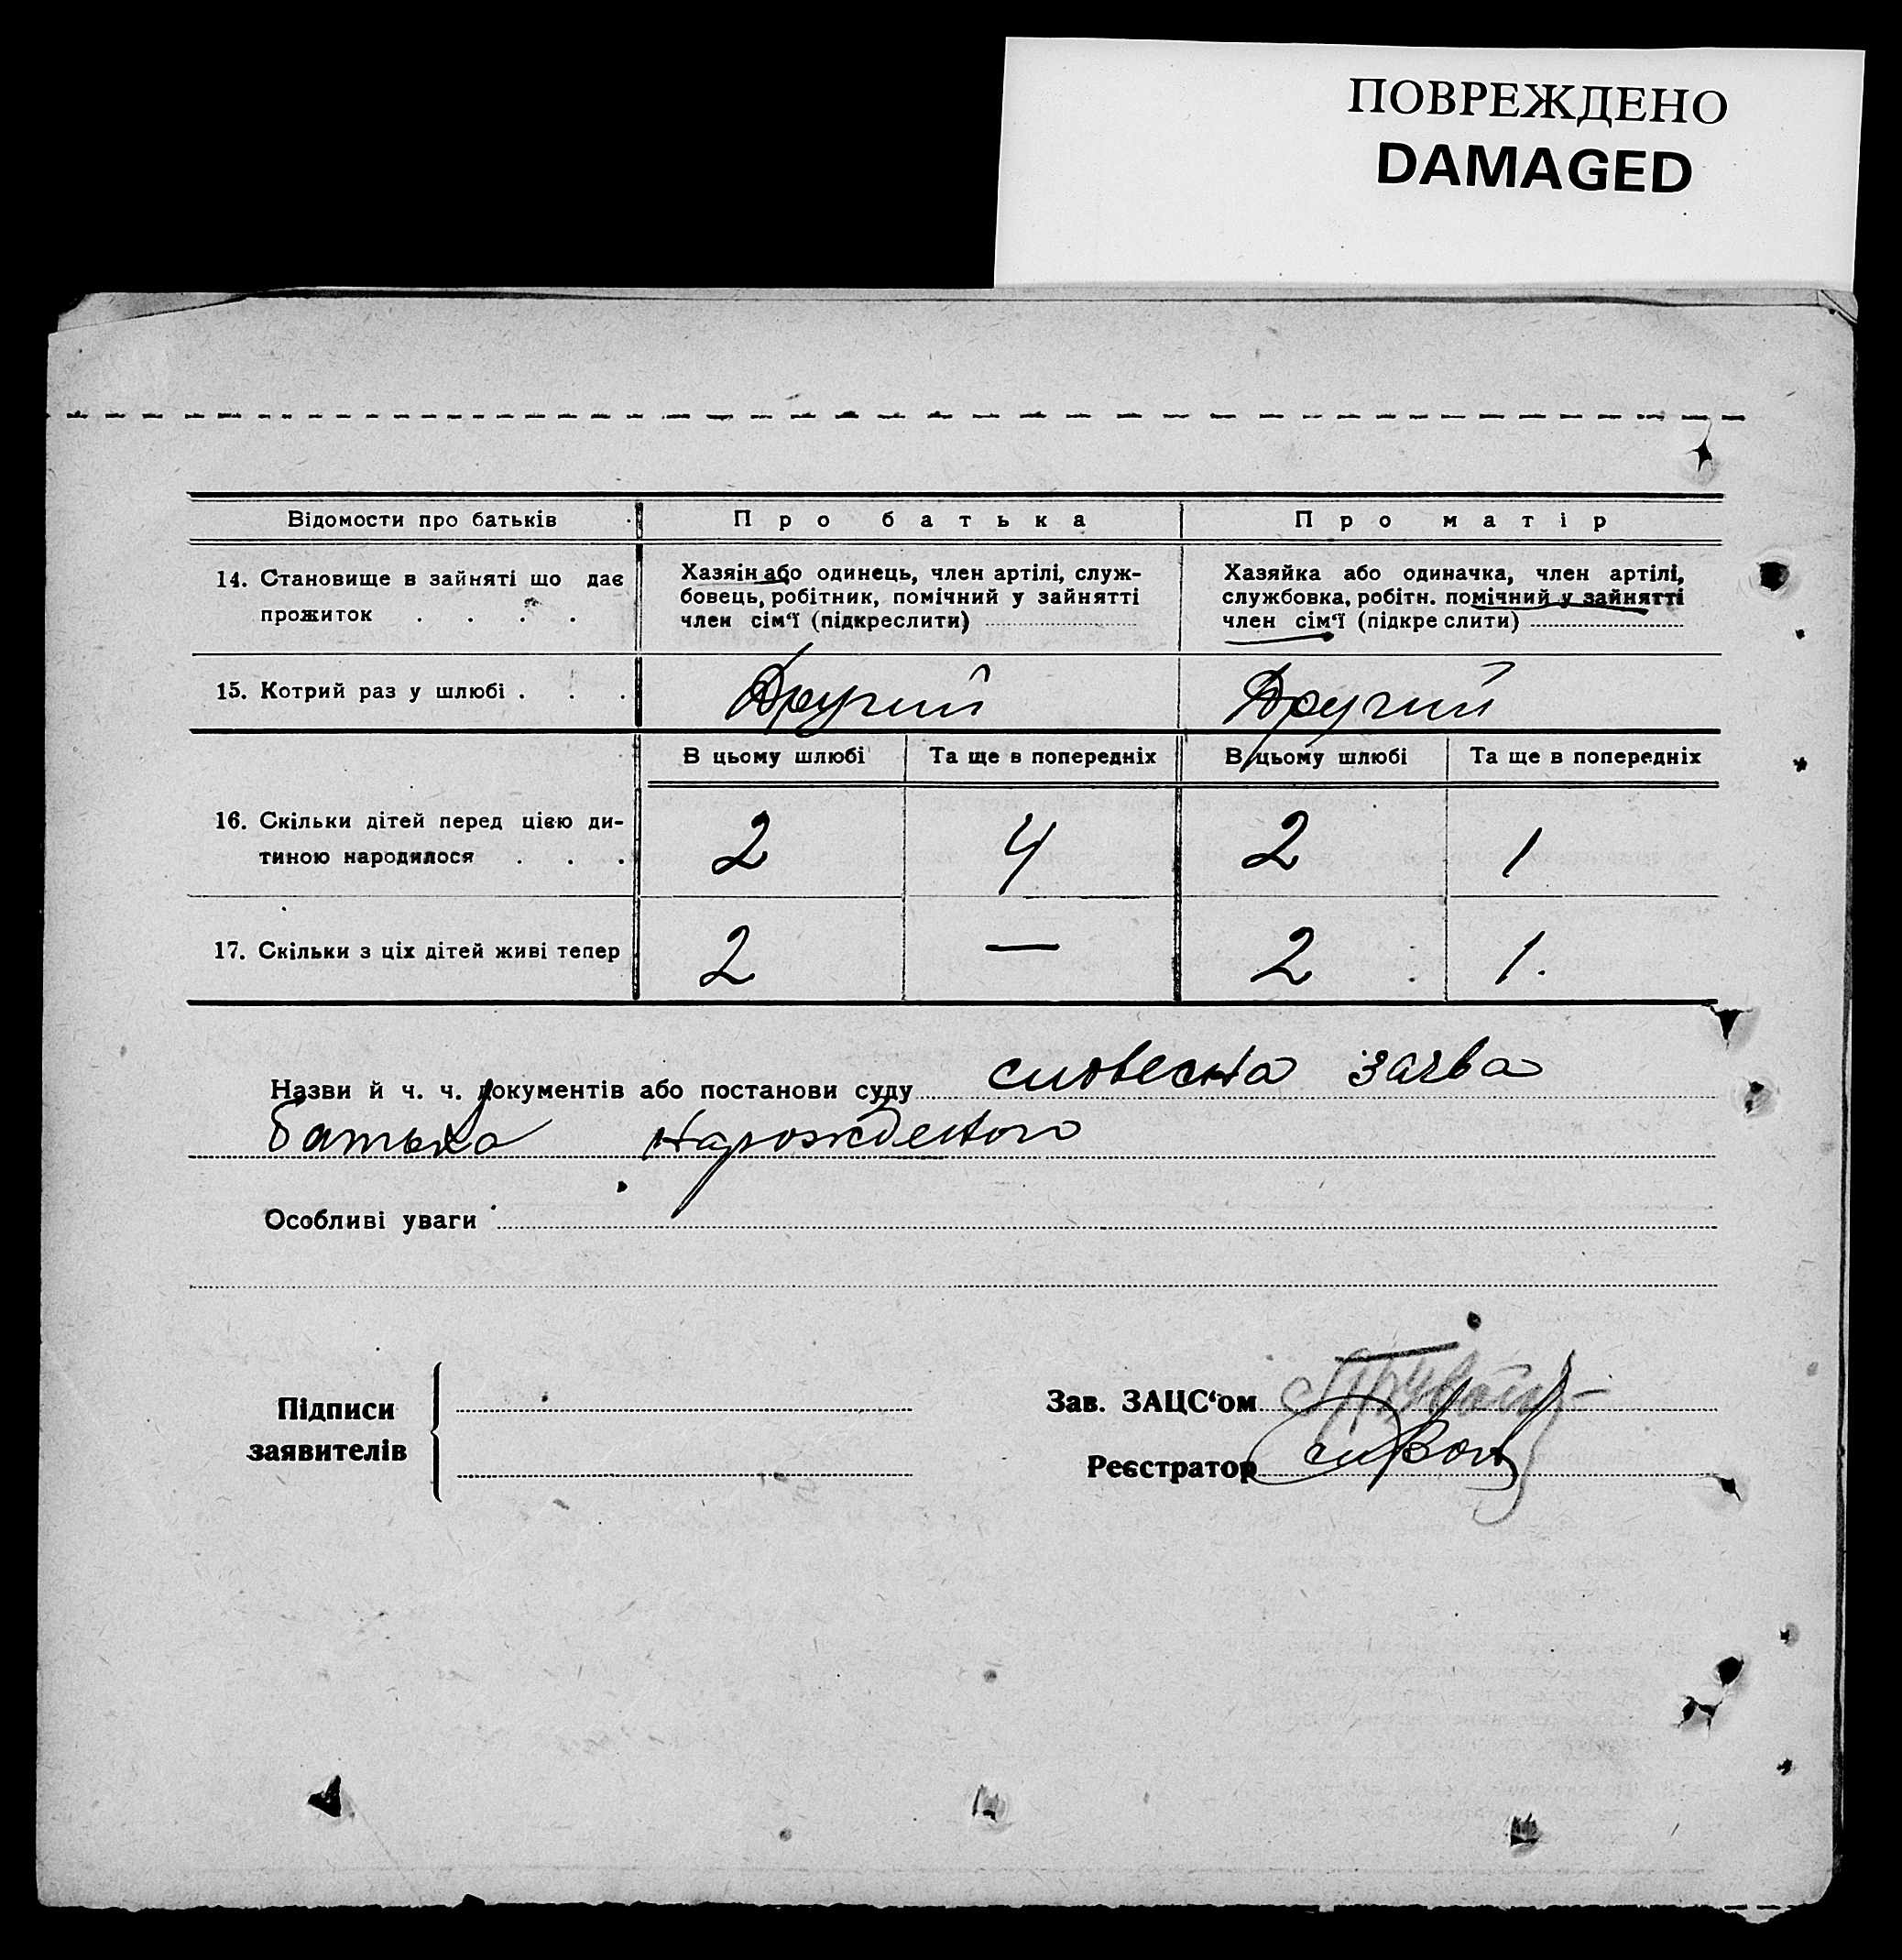 ПОВРЕЖДЕНО
DAMAGED
Відомости про батьків
Про батька
Про матір
14. Становище в зайняті що дає
прожиток . . . .
Хазяїн або одинець, член артілі, служ-
бовець, робітник, помічний у зайнятті
член сім‘ї (підкреслити)
Хазяйка або одиначка, член артілі,
службовка, робітн. помічний у зайнятті
член сім‘ї (підкреслити)
15. Котрий раз у шлюбі . . .
Другий
Другий
В цьому шлюбі
Та ще в попередніх
В цьому шлюбі
Та ще в попередніх
16. Скільки дітей перед цією ди-
тиною народилося . . .
2
4
2
1
17. Скільки з ціх дітей живі тепер
2
—
2
1.
Назви й ч. ч. документів або постанови суду словесна заява
батька нарожденого
Особливі уваги
Підписи
заявителів
Зав. ЗАЦС‘ом
Реєстратор